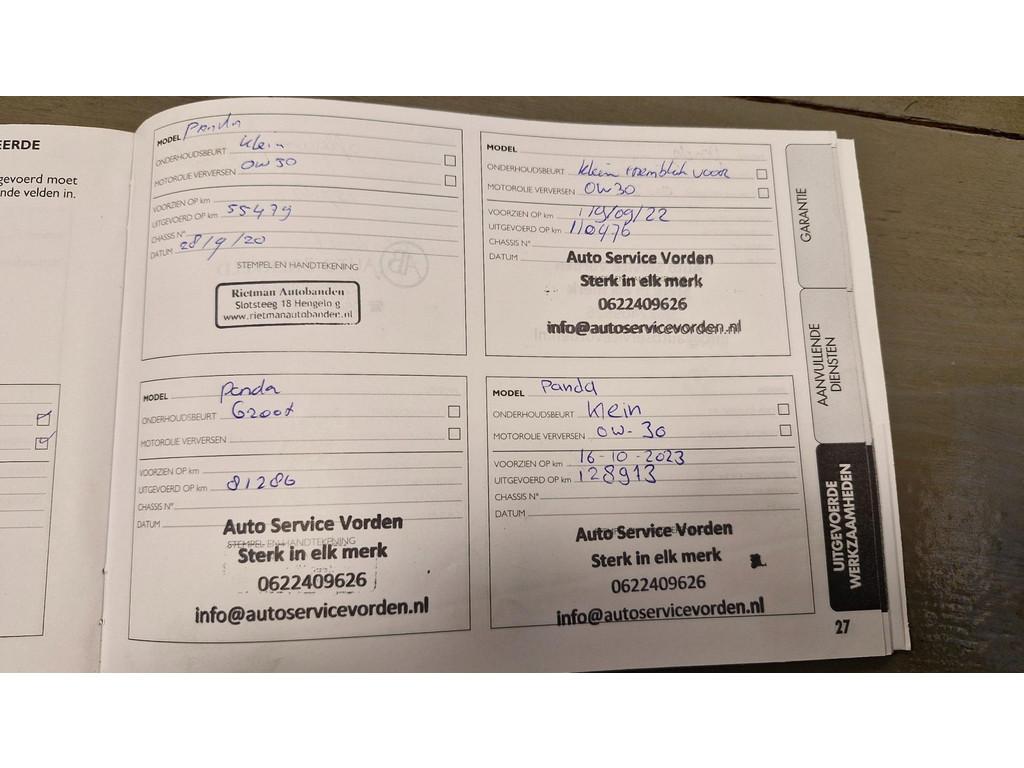 EERDE
gevoerd moet
nde velden in.
MODEL Panda
ONDERHOUDSBEURT Klein
MOTOROLIE VERVERSEN 0W30
VOORZIEN OP km
UITGEVOERD OP km 55479
CHASSIS N°
DATUM 28/9/20
STEMPEL EN HANDTEKENING
Rietman Autobanden
Slotsteeg 18 Hengelo g
www.rietmanautobanden.nl
MODEL
ONDERHOUDSBEURT Klein remblok voor
MOTOROLIE VERVERSEN 0W30
VOORZIEN OP km 19/09/22
UITGEVOERD OP km 110476
CHASSIS N°
DATUM
Auto Service Vorden
Sterk in elk merk
0622409626
info@autoservicevorden.nl
MODEL Panda
ONDERHOUDSBEURT Groot
MOTOROLIE VERVERSEN
VOORZIEN OP km
UITGEVOERD OP km 81286
CHASSIS N°
DATUM
Auto Service Vorden
STEMPEL EN HANDTEKENING
Sterk in elk merk
0622409626
info@autoservicevorden.nl
MODEL Panda
ONDERHOUDSBEURT Klein
MOTOROLIE VERVERSEN 0W-30
VOORZIEN OP km 16-10-2023
UITGEVOERD OP km 128913
CHASSIS N°
DATUM
Auto Service Vorden
Sterk in elk merk
0622409626
info@autoservicevorden.nl
GARANTIE
AANVULLENDE
DIENSTEN
UITGEVOERDE
WERKZAAMHEDEN
27